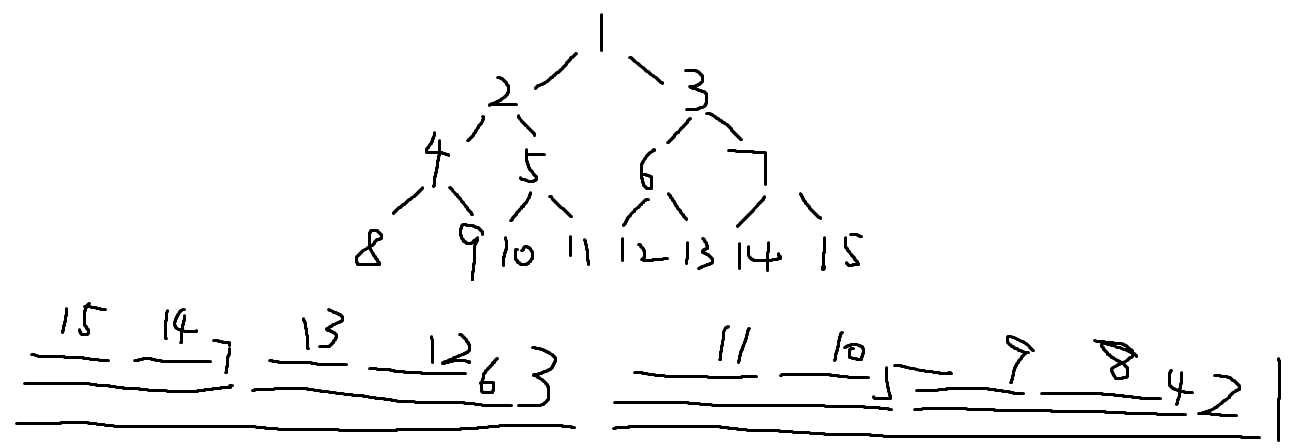 1
2 3
4 5 6 7
8 9 10 11 12 13 14 15
15 14 7 13 12 6 3 11 10 5 9 8 4 2 1